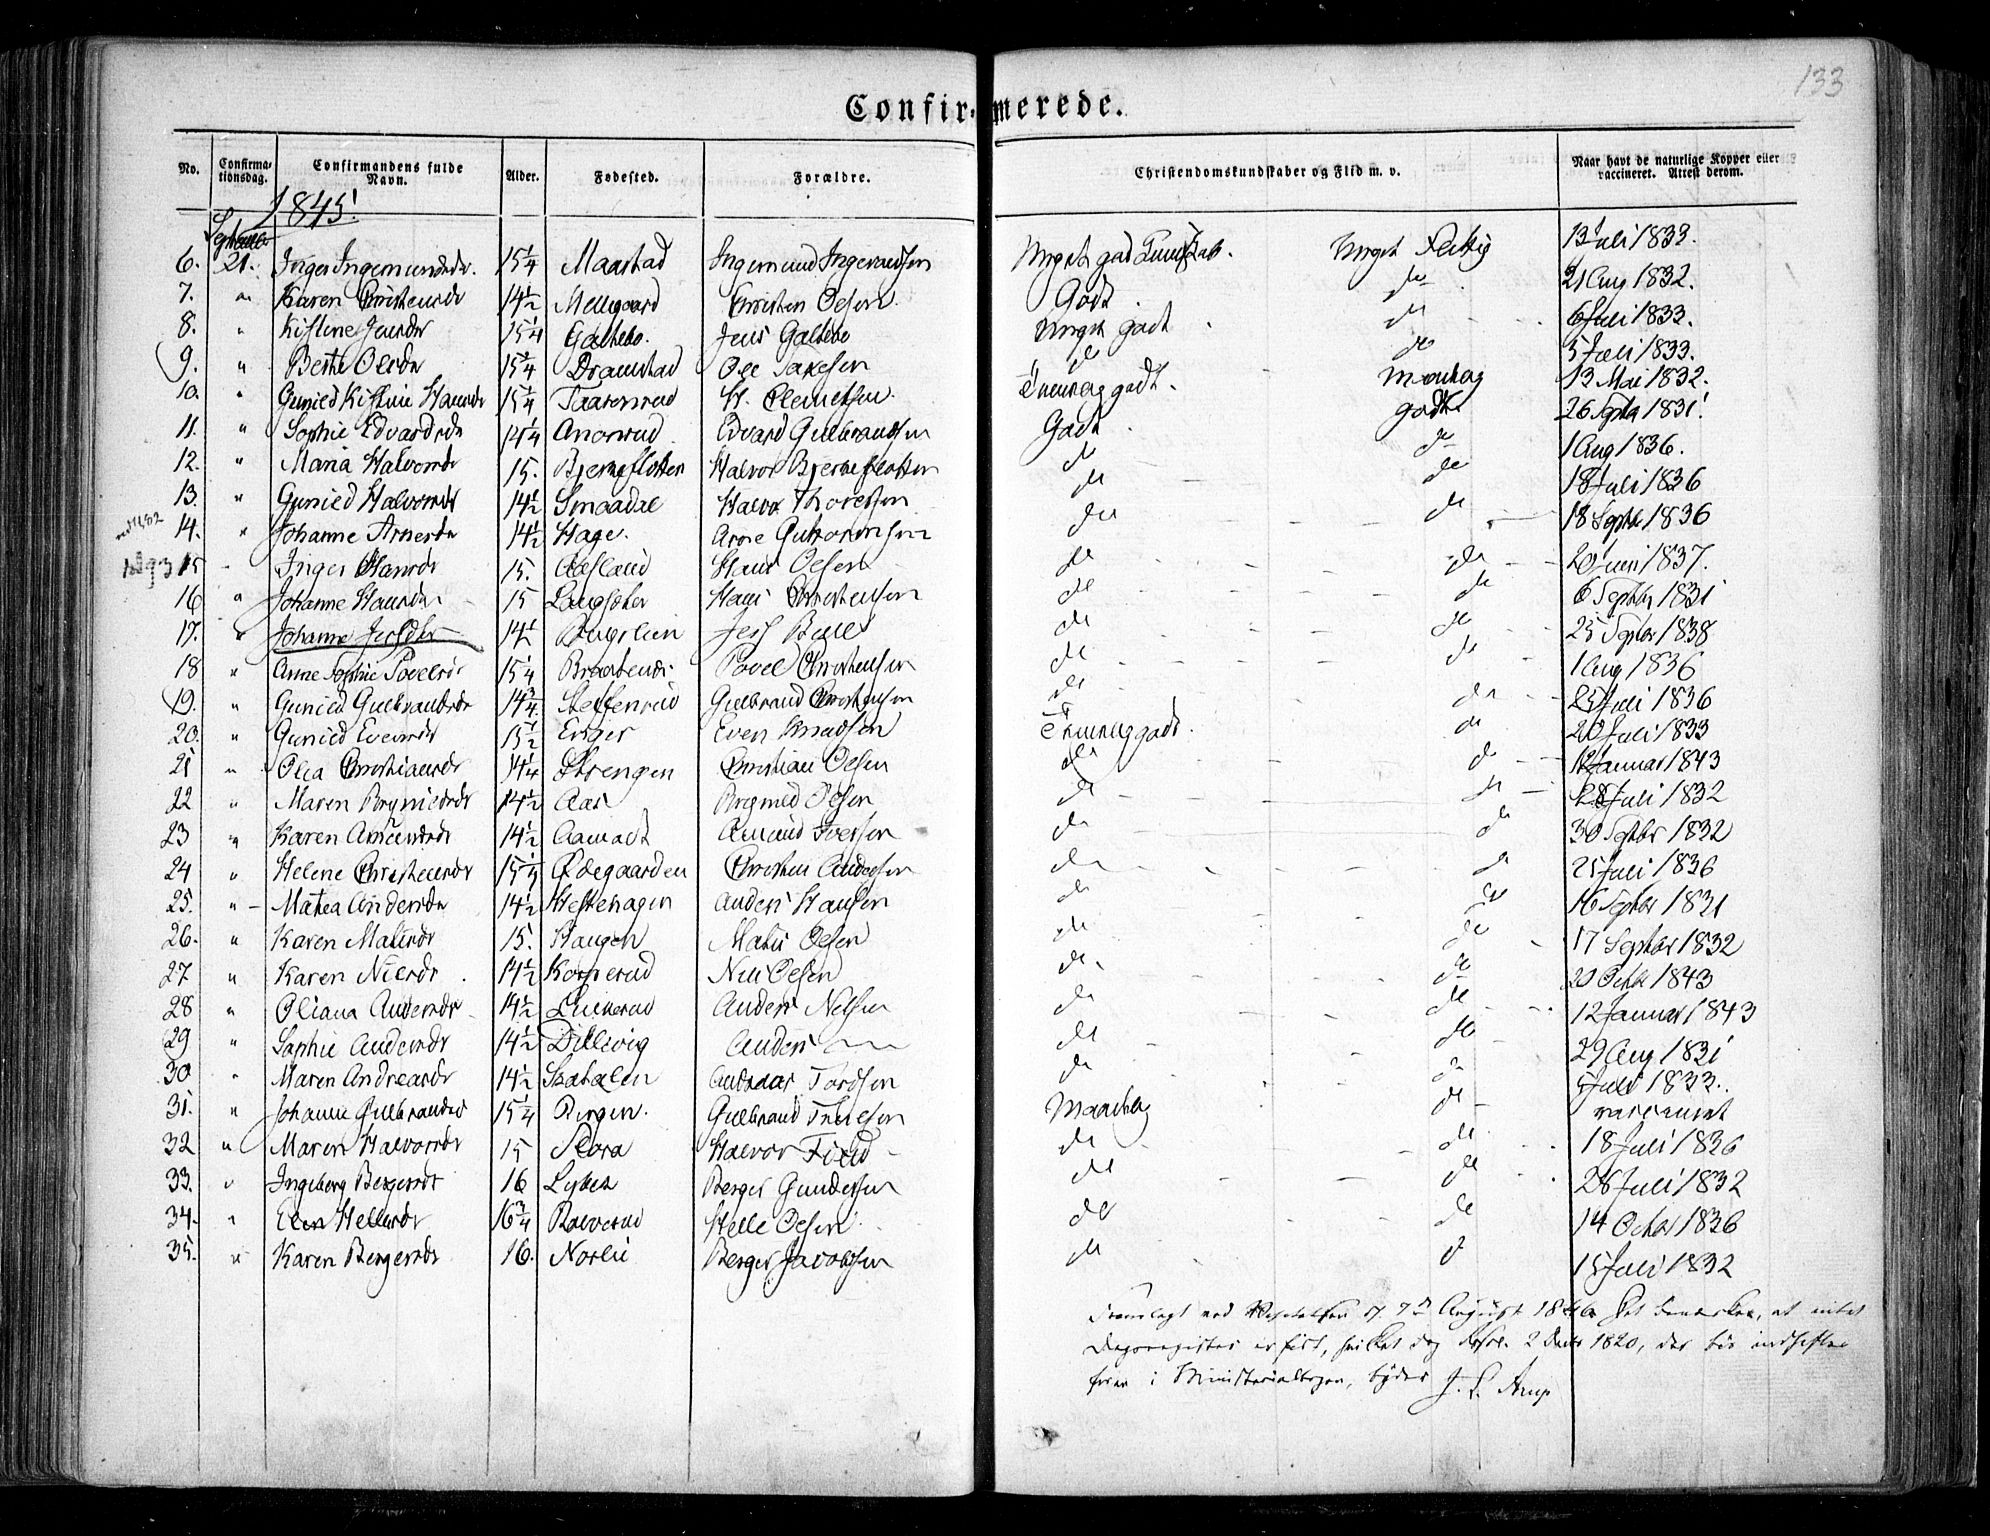 133
Confirmerede.
No. Confirmationsdag. Confirmandens fulde Navn. Alder. Fødested. Forældre. Christendomskundskaber og Flid m. v. Naar havt de naturlige Kopper eller vaccineret. Attest derom.
1845!
September
6. 21. Inger Ingemundsdr. 15 1/4 Maarstad Ingemund Ingevaldsen Meget god Kundskab. Meget Flittig 13 Juli 1833.
7. " Karen Christensdr 14 1/2 Mellgaard Christen Olsen Godt. do 21 Aug 1832.
8. " Kistine Jensdr 15 1/4 Galtebo. Jens Galtebo Meget godt. do 6 Juli 1833.
9. " Berthe Olsdr 15 1/4 Dramstad Ole do do 5 Juli 1833.
10. " Gunild Kistine Hansdr 15 1/4 Taarnrud H. Clemetsen. Temmelig godt. 13 Mai 1832.
11. " Sophie Edvardsdr 14 1/4 Anonrud Edvard Gulbrandsen Godt. godt 26 Septbr 1831!
12. " Maria Halvorsdr 15. Bjerneflotten Halvor Bjerneflotten do do 1 Aug 1836.
13. " Gunild Halvorsdr 14 1/2 Smaadal Halvor Thoresen do do 18 Juli 1836
14. " Johanne Arnesdr 14 1/2 Hage. Arne Guttormsen do do 18 Septbr 1836
15 " Inger Hansdr 15. Aasland Hans Olsen do do 20 Juni 1837.
16 " Johanne Hansdr 15 Hans Christensen do do 6 Septbr 1831
17. " Johanne Jessdtr 14 1/2 Jess do do 25 Septbr 1838
18 " Anne Sophie Povelsdr 15 1/4 Braatende Povel Christensen do do 1 Aug 1836
19. " Gunild Gulbrandsdr 14 3/4 Steffenrud Gulbrand Christensen do do 25 Juli 1836
20. " Gunild Evensdr 15 1/2 Enger Even Knudsen Temmelig godt. do 20 Juli 1833
21 " Olea Christiansdr 14 1/4 Strengen Christian Olsen do do 12 Januar 1843
22 " Maren Brynildsdr 14 1/2 Aas Brynild Olsen do do 28 Juli 1832
23 " Karen Amundsdr 14 1/2 Aamodt Amund Iversen do do 30 Septbr 1832
24 " Helene Christensdr 15 1/4 Ødegaarden Christen Andersen do do 25 Juli 1836
25. " Mathea Andersdr 14 1/2 Hestehagen Anders Hansen do do 16 Septbr 1831
26. " Karen Matisdr 15. Haugen Matis Olsen do do 17 Septbr 1832
27. " Karen Nilsdr 14 1/2 Korperud Nils Olsen do do 20 Octbr 1843
28 " Oliana Andersdr 14 1/2 Anders Nelsen do do 12 Januar 1843
29 " Sophie Andersdr 14 1/2 Dillevig Anders do do 29 Aug 1831
30 " Maren Andreasdr 14 1/2 Skatelen Andreas Tordsen do do 5 Juli 1833.
31. " Johanne Gulbrandsdr 15 1/4 Bergen. Gulbrand Maadelig do vaccineret
32 " Maren Halvorsdr 15 Flora Halvor do do 18 Juli 1836
33. " Ingeborg Bergersdr 16 Lybek Berger Gundersen do do 28 Juli 1832
34. " Elen Hellesdr 16 3/4 Helle Olsen do do 14 Octbr 1836
35. " Karen Bergersdr 16. Norlie Berger Jacobsen do do 15 Juli 1832
Fremlagt ved Visitatsen d. 7de August 1846. Det bemærkes, at intet
Dagsregister er ført, hvilket dog Rescr. 2 Decbr 1820, der bør indheftes
foran i Ministerialbogen, byder J. L. Arup